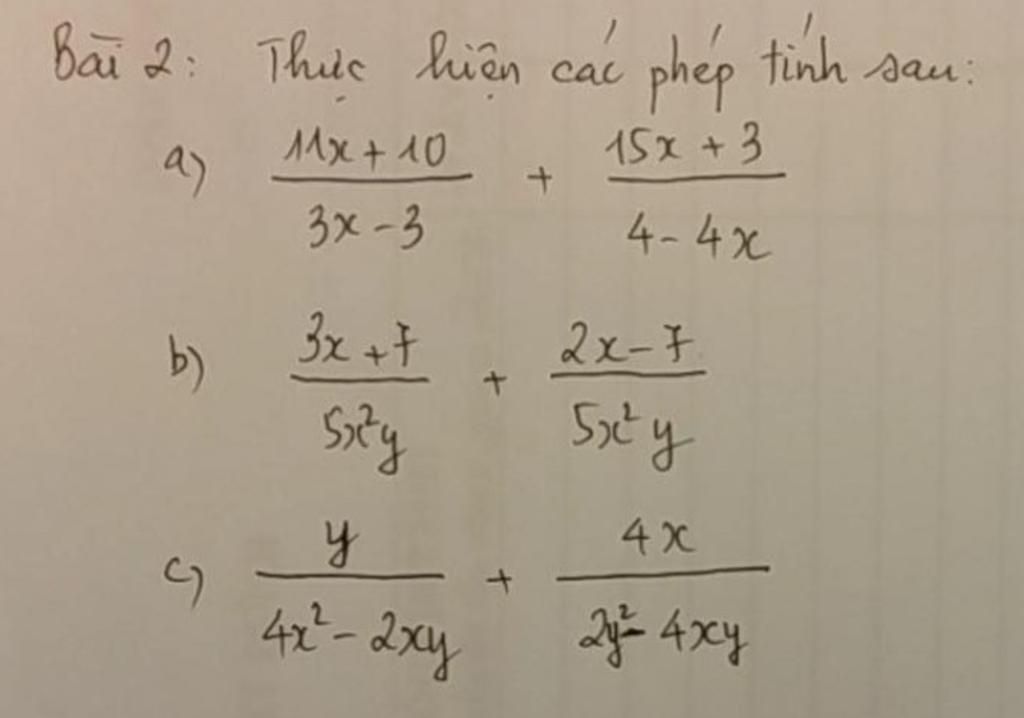 Bài 2: Thực hiện các phép tính sau:
a) \frac{11x+10}{3x-3} + \frac{15x+3}{4-4x}
b) \frac{3x+7}{5x^2y} + \frac{2x-7}{5x^2y}
c) \frac{y}{4x^2-2xy} + \frac{4x}{2y^2-4xy}